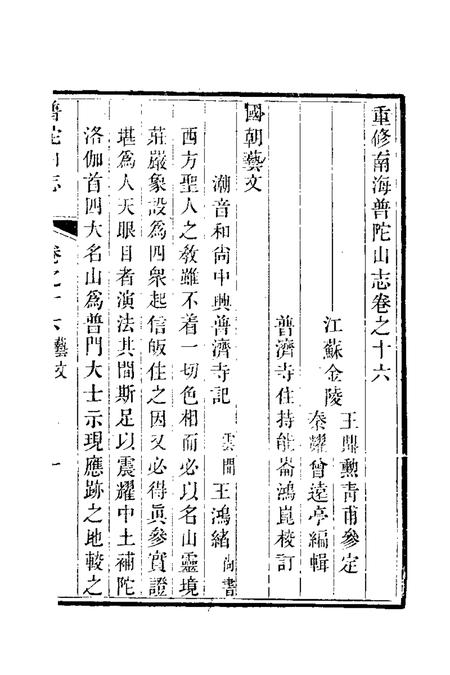 重修南海普陀山志卷之十六
江蘇金陵
王鼎勲青甫參定
秦耀曾遠亭編輯
普濟寺住持能崙鴻崑校訂
國朝藝文
潮音和尚中興普濟寺記
雲間
王鴻緒
尚書
西方聖人之敎雖不着一切色相而必以名山靈境
莊嚴象設爲四衆起信皈住之因又必得眞參實證
堪爲人天眼目者演法其間斯足以震耀中土補陀
洛伽首四大名山爲普門大士示現應跡之地較之
普陀山志
卷之十六
藝文
一